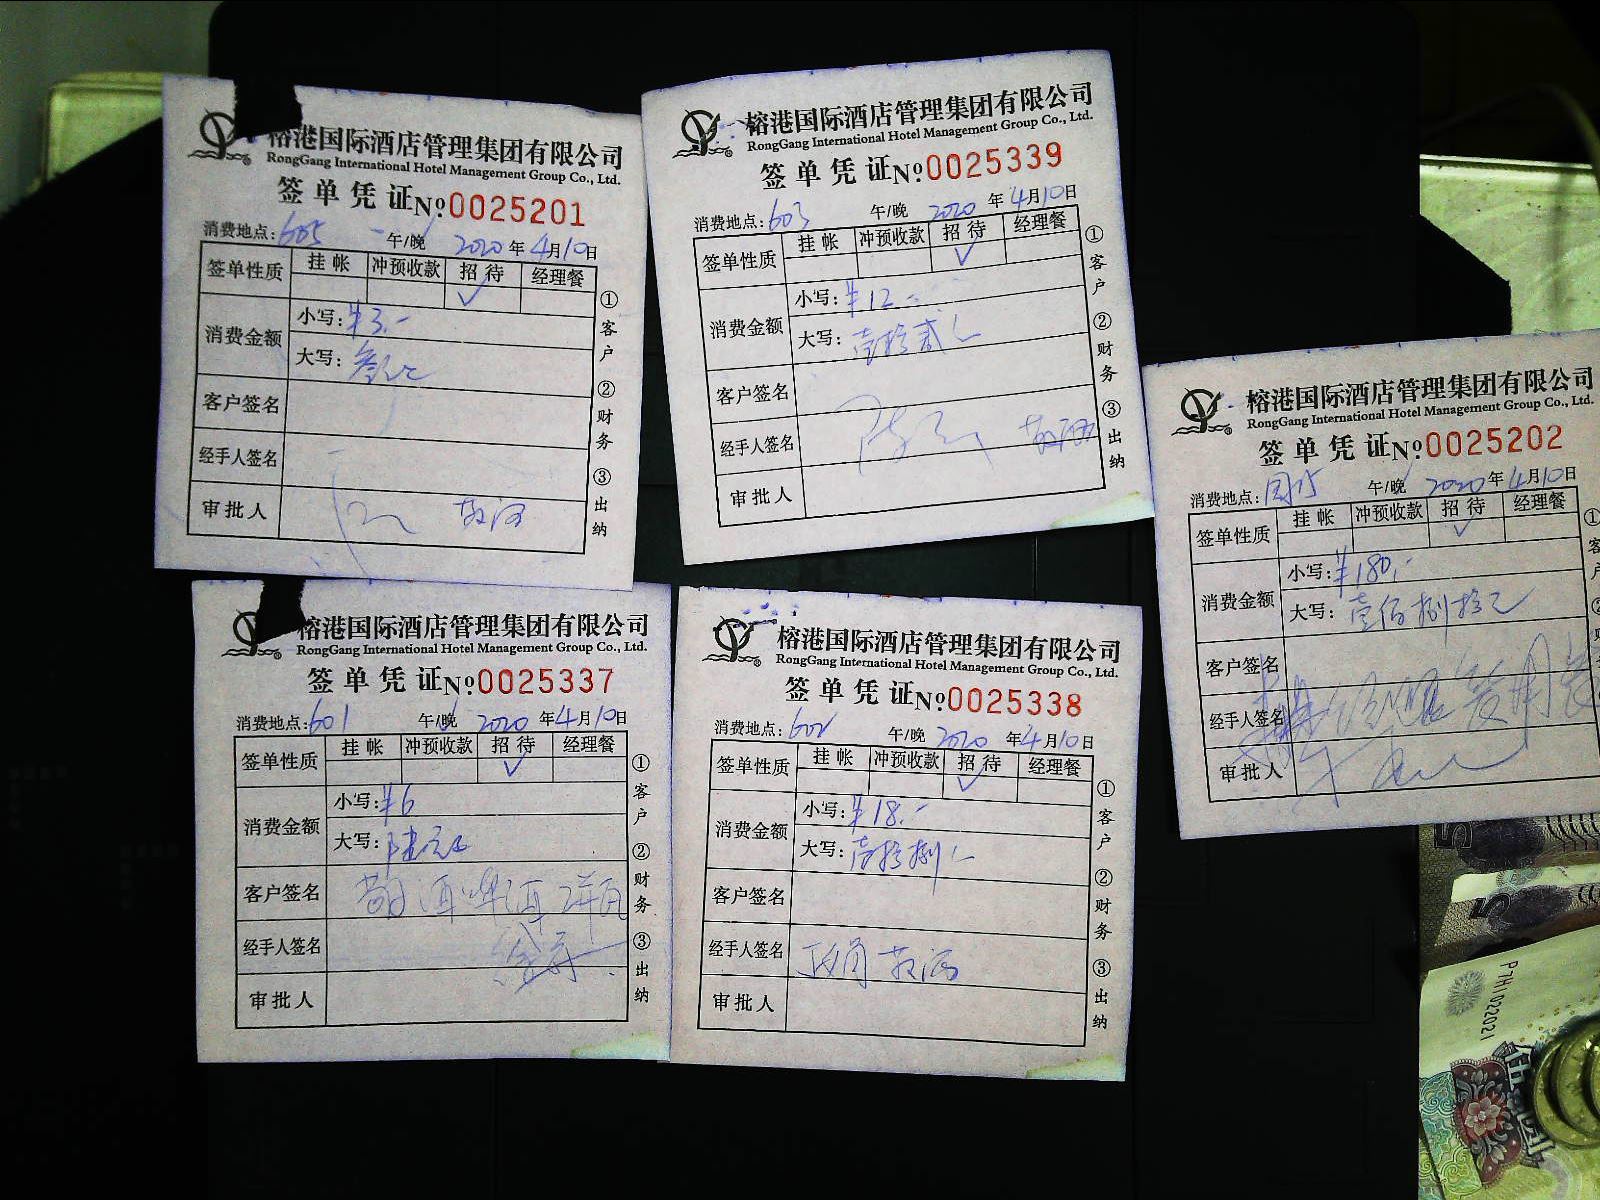 榕港国际酒店管理集团有限公司
RongGang International Hotel Management Group Co., Ltd.
签单凭证 №0025201
消费地点:605 午/晚 2020年4月10日
签单性质 挂帐 冲预收款 招待 经理餐
✓
消费金额 小写:¥3.-
大写:叁元
客户签名
经手人签名
审批人
①客户 ②财务 ③出纳
榕港国际酒店管理集团有限公司
RongGang International Hotel Management Group Co., Ltd.
签单凭证 №0025339
消费地点:603 午/晚 2020年4月10日
签单性质 挂帐 冲预收款 招待 经理餐
✓
消费金额 小写:¥12.-
大写:壹拾贰元
客户签名
经手人签名
审批人
①客户 ②财务 ③出纳
榕港国际酒店管理集团有限公司
RongGang International Hotel Management Group Co., Ltd.
签单凭证 №0025202
消费地点: 午/晚 2020年4月10日
签单性质 挂帐 冲预收款 招待 经理餐
✓
消费金额 小写:¥180.-
大写:壹佰捌拾元
客户签名
经手人签名
审批人
榕港国际酒店管理集团有限公司
RongGang International Hotel Management Group Co., Ltd.
签单凭证 №0025337
消费地点:601 午/晚 2020年4月10日
签单性质 挂帐 冲预收款 招待 经理餐
✓
消费金额 小写:¥6
大写:陆元
客户签名
经手人签名
审批人
①客户 ②财务 ③出纳
榕港国际酒店管理集团有限公司
RongGang International Hotel Management Group Co., Ltd.
签单凭证 №0025338
消费地点:602 午/晚 2020年4月10日
签单性质 挂帐 冲预收款 招待 经理餐
✓
消费金额 小写:¥18.-
大写:壹拾捌元
客户签名
经手人签名
审批人
①客户 ②财务 ③出纳
P7H1022021
伍圆